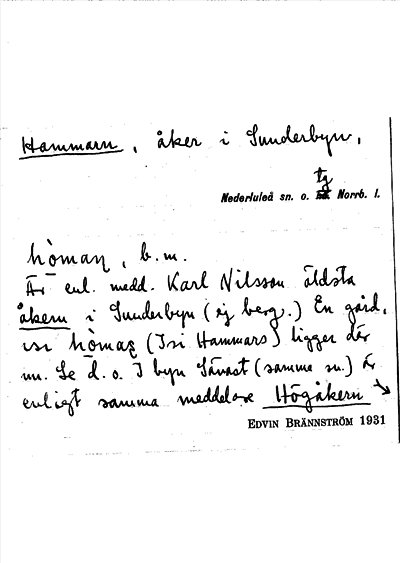 Hammarn, åker i Sunderbyn,
tg
Nederluleå sn. o. Norrb. l.
hòman, b.m.
Är enl. medd. Karl Nilsson äldsta
åkern i Sunderbyn (ej berg.) En gård,
isi hòmaș (Isi Hammars) ligger där
nu. Se d.o. I byn Sävast (samme sn.) är
enligt samma meddelare Högåkern
EDVIN BRÄNNSTRÖM 1931